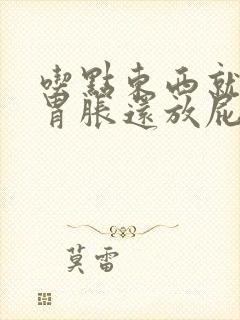 喫點東西就
胃脹還放屁
莫雷